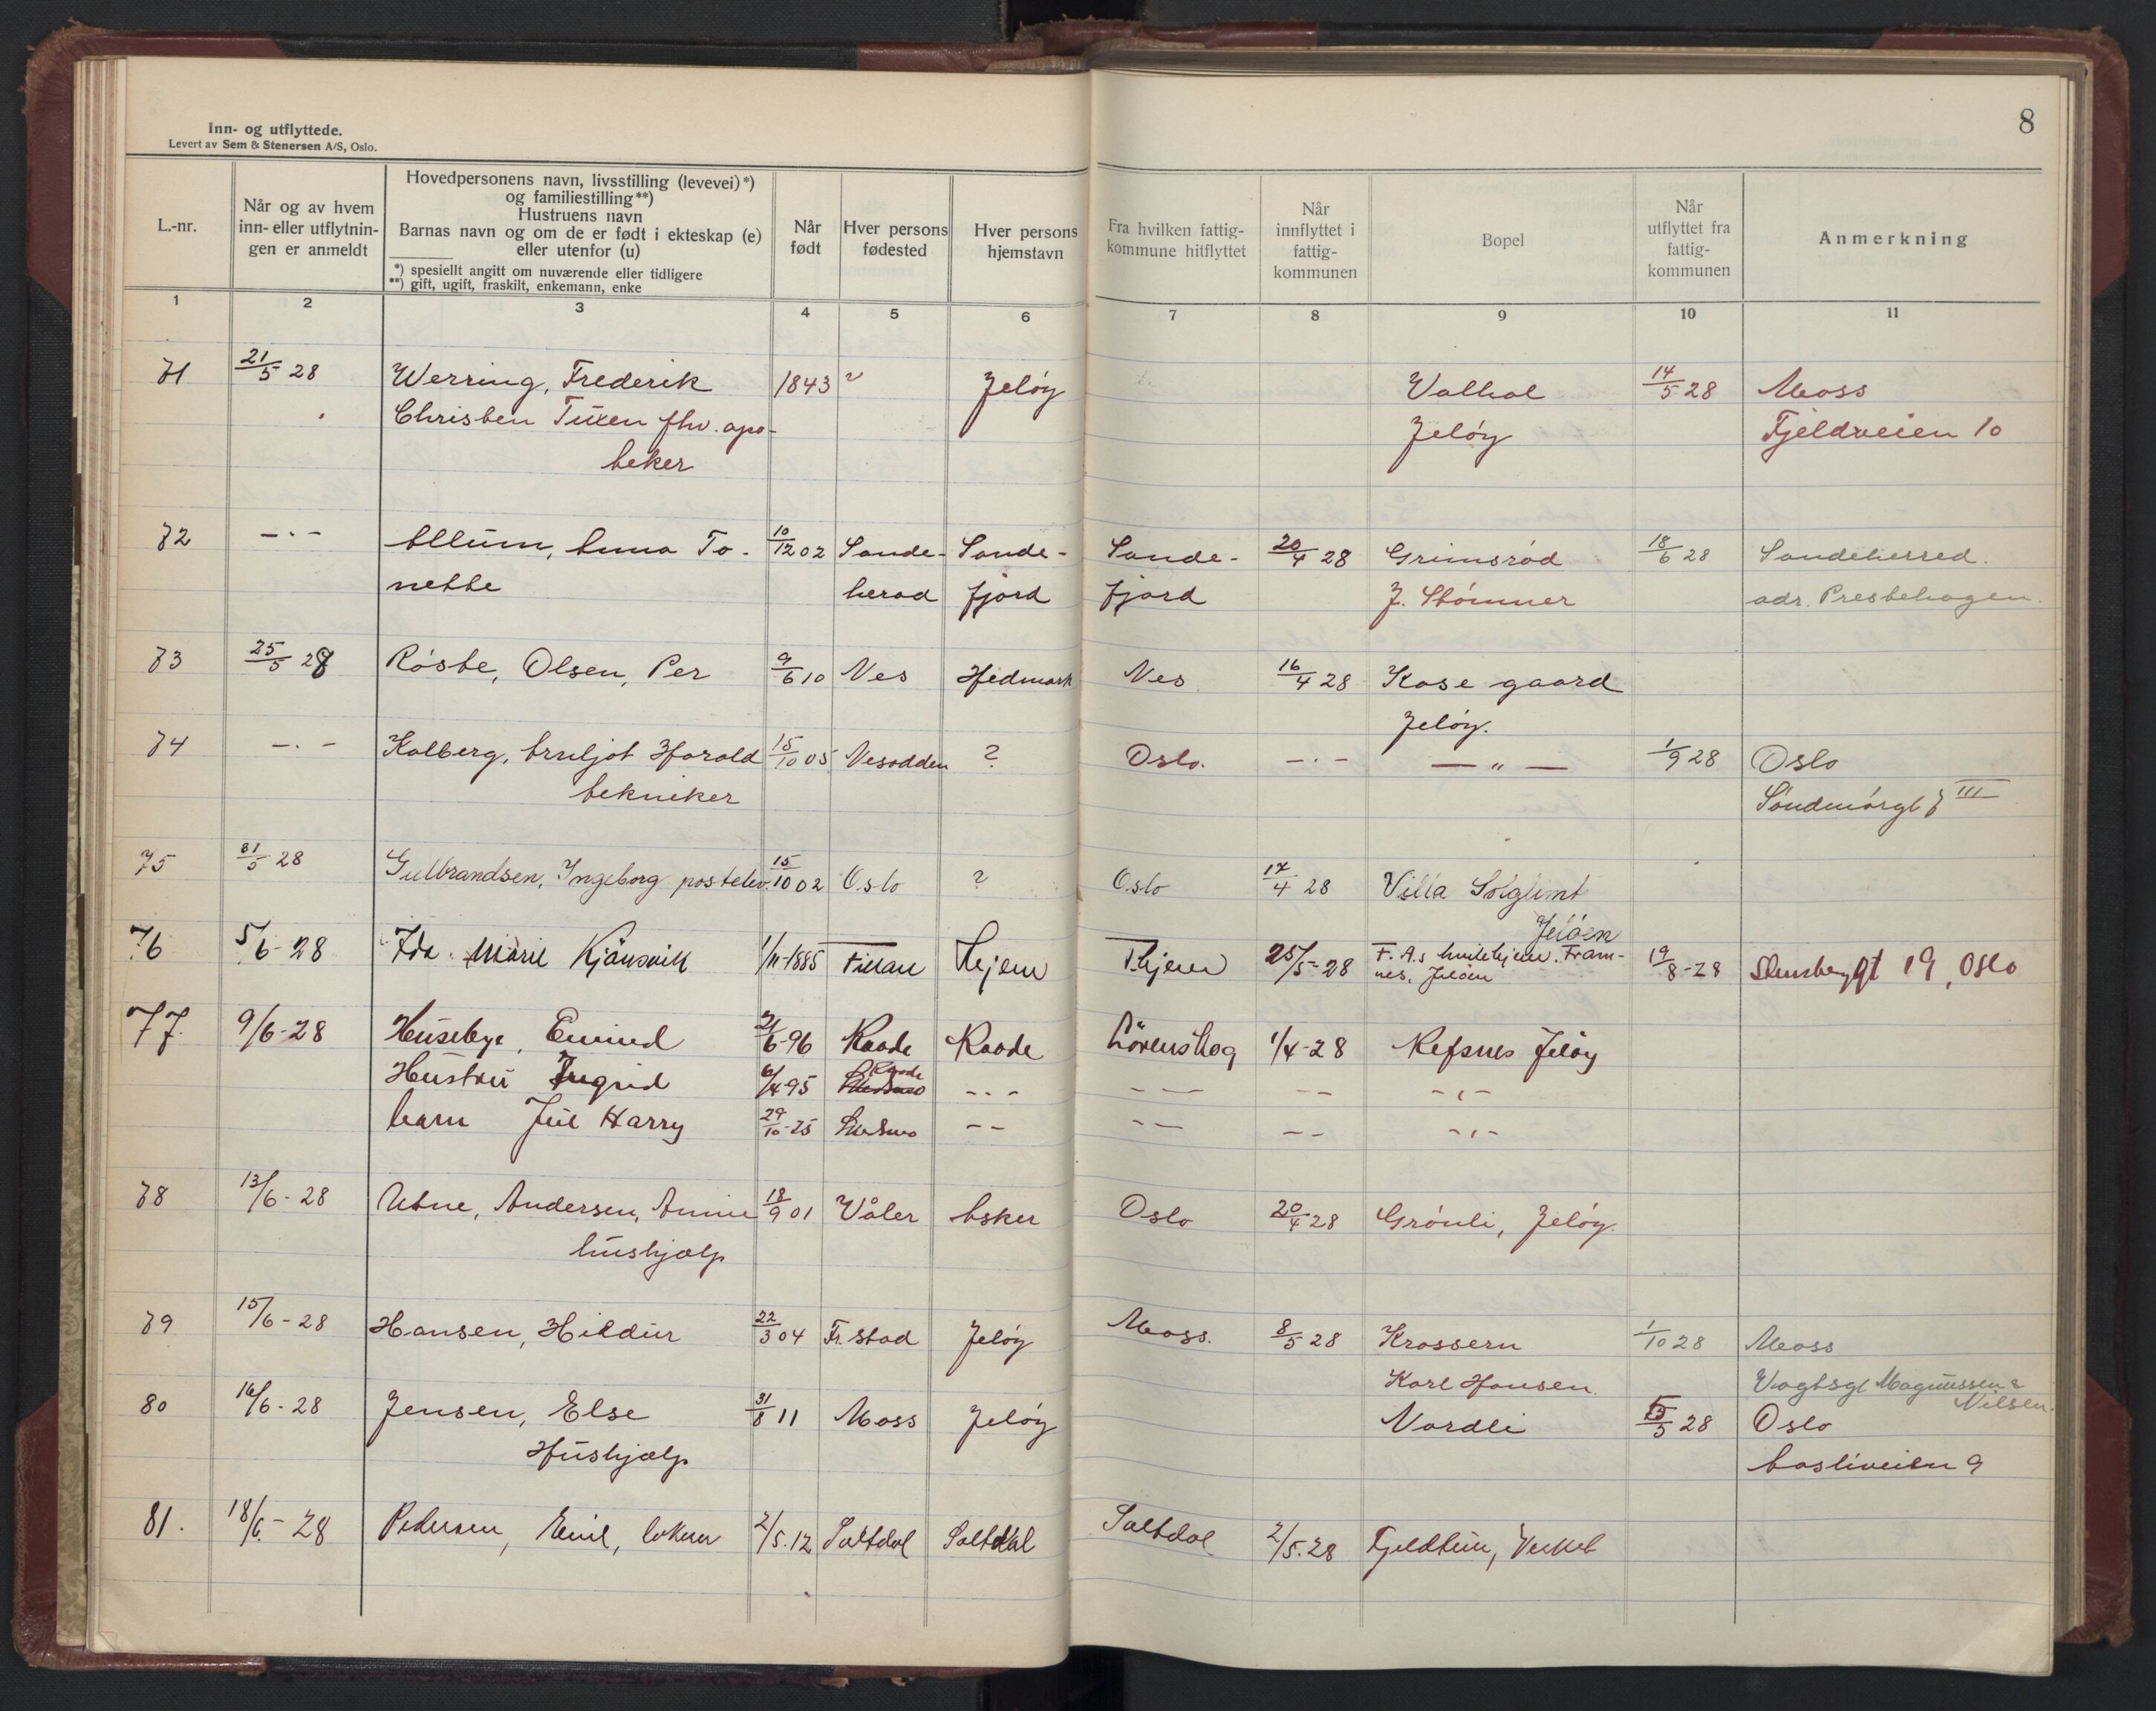 8
Inn- og utflyttede.
Levert av Sem & Stenersen A/S, Oslo.
L.-nr.
Når og av hvem inn- eller utflytnin- gen er anmeldt
Hovedpersonens navn, livsstilling (levevei)*)
og familiestilling**)
Hustruens navn
Barnas navn og om de er født i ekteskap (e)
eller utenfor (u)
*) spesiellt angitt om nuværende eller tidligere
**) gift, ugift, fraskilt, enkemann, enke
Når født
Hver persons fødested
Hver persons hjemstavn
Fra hvilken fattig- kommune hitflyttet
Når innflyttet i fattig- kommunen
Bopel
Når utflyttet fra fattig- kommunen
Anmerkning
1 2 3 4 5 6 7 8 9 10 11
71 21/5 28 Werring, Frederik 1843 ? Jeløy Valhal 14/5 28 Moss
Christen Tuxen fhv. apo- Jeløy Fjeldveien 10
teker
72 — · — Allum, Anna To- 10/12 02 Sande- Sande- Sande- 20/4 28 Grimsrød 18/6 28 Sandeherred.
nette herad fjord fjord J. Stømner adr. Prestehagen.
73 25/5 28 Røste, Olsen, Per 9/6 10 Ves Hedmark Ves 16/4 28 Kase gaard
Jeløy.
74 — · — Kolberg, Arnljot Harald 15/10 05 Nesodden ? Oslo. — · — — „ — 1/9 28 Oslo
tekniker Søndmørgt 7 III
75 31/5 28 Gulbrandsen, Ingeborg postelev. 15/10 02 Oslo ? Oslo 17/4 28 Villa Solglimt
Jeløen
76 5/6-28 Ida Marie Kjønsvik 1/11-1885 Fillan Hejem 25/5-28 F. A.s hvilehjem. Fram- 19/8-28 19, Oslo
nes, Jeløen
77. 9/6-28 Husebye, Eivind 21/6-96 Raade Raade Lörenskog 1/4-28 Refsnes Jeløy
Hustru Ingrid 6/4 95 Raade — · — — — — — — , —
barn Juel Harry 29/10-25 — — — — — — — , —
78 13/6-28 Utne, Andersen, Annie 18/9 01 Våler Asker Oslo 20/4 28 Grønli, Jeløy.
hushjælp
79 15/6-28 Hansen, Hildur 22/3 04 Fr.stad Jeløy Moss. 8/5 28 Krossern 1/10 28 Moss
Karl Hansen. Vogtsgt Magnussen &
Nilsen.
80 16/6-28 Jensen, Else 31/8 11 Moss Jeløy Nordli 15/5 28 Oslo
Hushjælp Aasliveien 9
81. 18/6.-28 Pedersen, Emil, 2/5.12 Saltdal Saltdal Saltdal 2/5.28 Fjeldheim, Verket